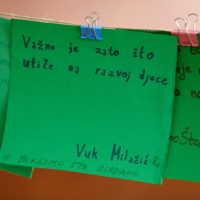 Važno je zato što
utiče na razvoj djece
Vuk Milačić
BIRAJMO ŠTA GLEDAMO